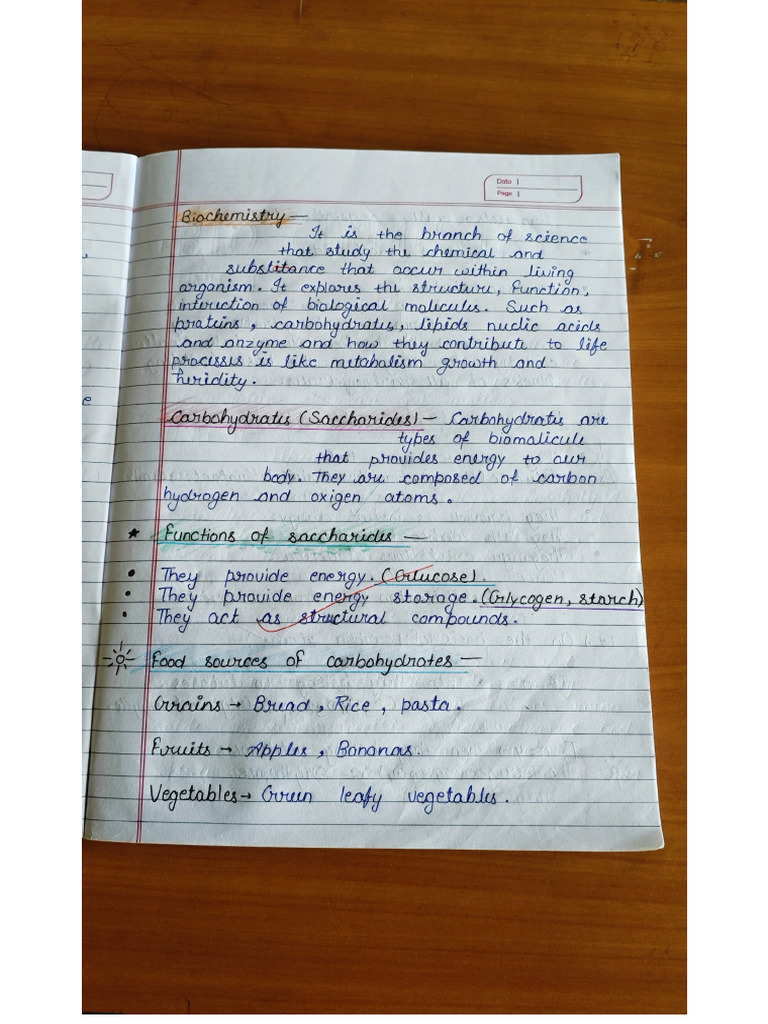 Date
Page
Biochemistry —
It is the branch of science
that study the chemical and
substitance that occur within living
arganism. It explares the structure, function,
interection of biological molicules. Such as
proteins, carbohydrates, lipids nuclic acids
and anzyme and how they contribute to life
processis is like metabalism growth and
heridity.
Carbohydrates (Saccharides) — Carbohydrates are
types of biomalicule
that provides energy to our
body. They are composed of carbon
hydrogen and oxigen atoms.
★ Functions of saccharides —
• They provide energy. (Glucose).
• They provide energy storage. (Glycogen, starch)
• They act as structural compounds.
Food sources of carbohydrates —
Grains → Bread, Rice, pasta.
Fruits → Apples, Bananas.
Vegetables → Green leafy vegetables.